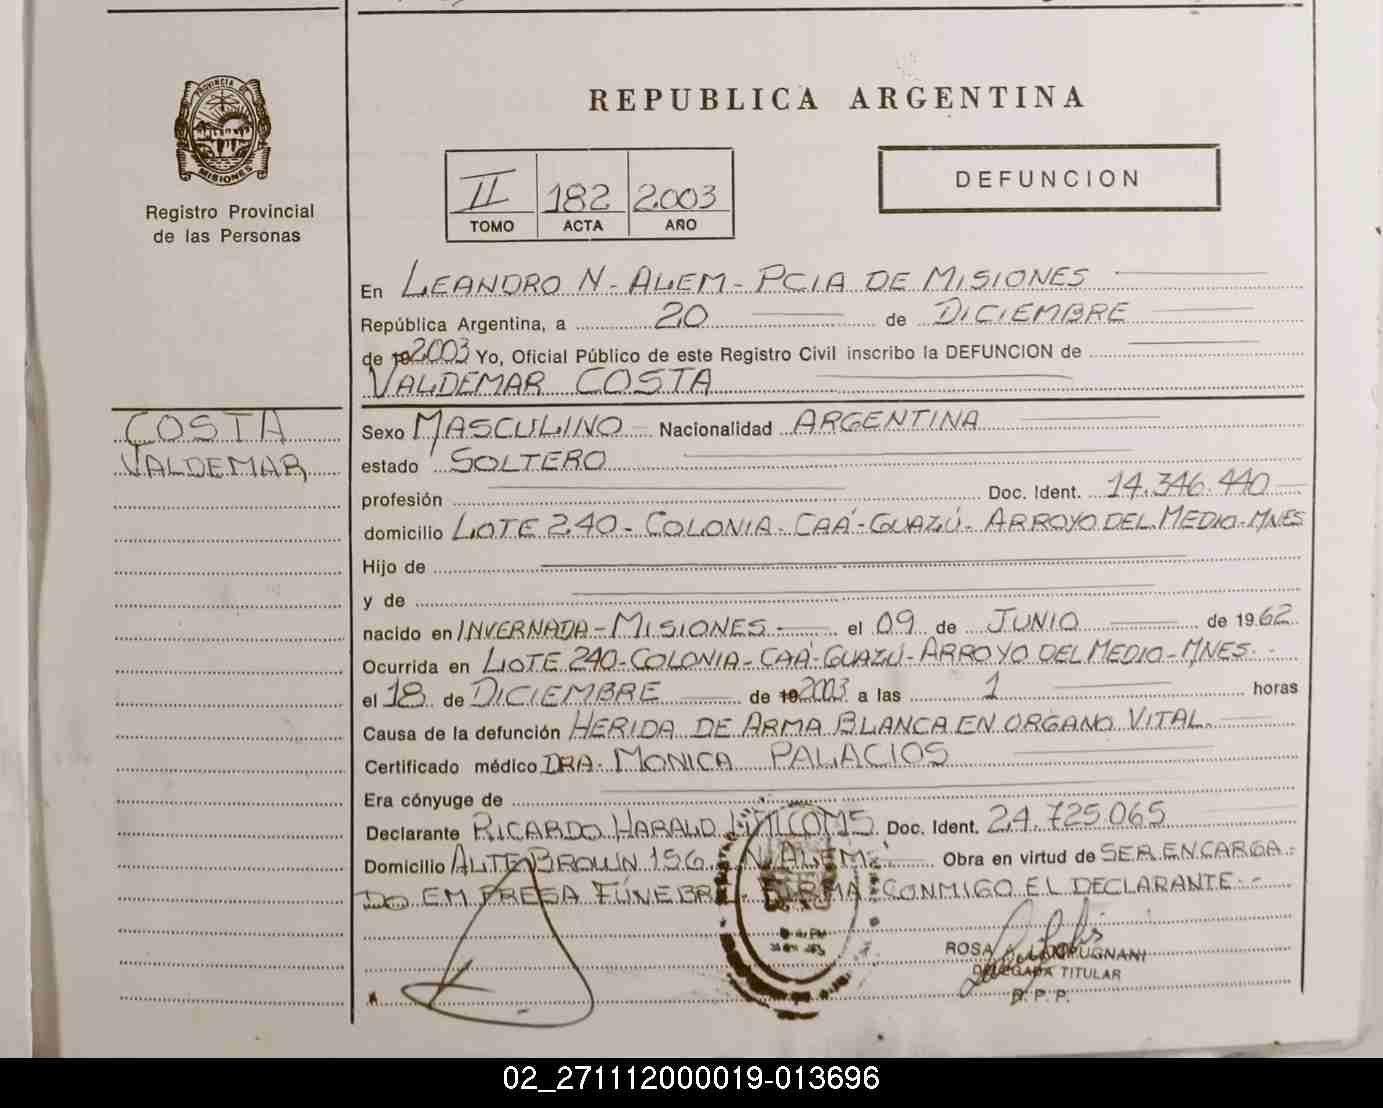 PROVINCIA DE
MISIONES
Registro Provincial
de las Personas
REPUBLICA ARGENTINA
II 182 2003
TOMO ACTA AÑO
DEFUNCION
En LEANDRO N. ALEM - PCIA DE MISIONES
República Argentina, a 20 de DICIEMBRE
de 19 2003 Yo, Oficial Público de este Registro Civil inscribo la DEFUNCION de
VALDEMAR COSTA
COSTA
VALDEMAR
Sexo MASCULINO Nacionalidad ARGENTINA
estado SOLTERO
profesión Doc. Ident. 14.346.440
domicilio LOTE 240 - COLONIA - CAÁ - GUAZÚ - ARROYO DEL MEDIO - MNES
Hijo de
y de
nacido en INVERNADA - MISIONES - el 09 de JUNIO de 1962
Ocurrida en LOTE 240 - COLONIA - CAÁ - GUAZÚ - ARROYO DEL MEDIO - MNES.
el 18 de DICIEMBRE de 19 2003 a las 1 horas
Causa de la defunción HERIDA DE ARMA BLANCA EN ORGANO VITAL.
Certificado médico DRA. MONICA PALACIOS
Era cónyuge de
Declarante RICARDO HARALD Doc. Ident. 24.725.065
Domicilio ALTE BROWN 156 N. ALEM Obra en virtud de SER ENCARGA-
DO EMPRESA FÚNEBRE - FIRMA CONMIGO EL DECLARANTE -
ROSA A. LAMPUGNANI
DELEGADA TITULAR
R. P. P.
02_271112000019-013696